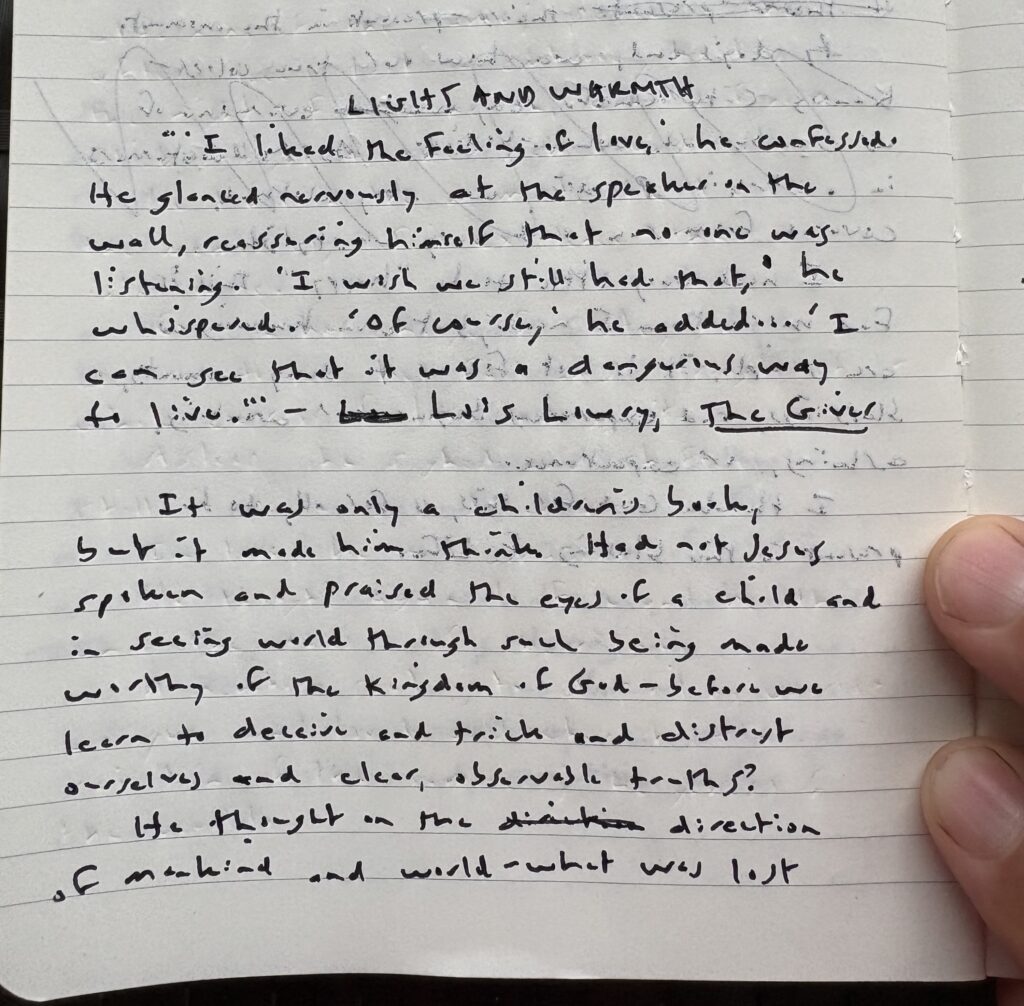 LIGHT AND WARMTH
"'I liked the feeling of love,' he confessed.
He glanced nervously at the speaker on the
wall, reassuring himself that no one was
listening. 'I wish we still had that,' he
whispered. 'Of course,' he added... 'I
can see that it was a dangerous way
to live.'" - Lois Lowry, The Giver
It was only a children's book,
but it made him think. Had not Jesus
spoken and praised the eyes of a child and
in seeing world through such being made
worthy of the Kingdom of God - before we
learn to deceive and trick and distrust
ourselves and clear, observable truths?
He thought on the direction
of mankind and world - what was lost